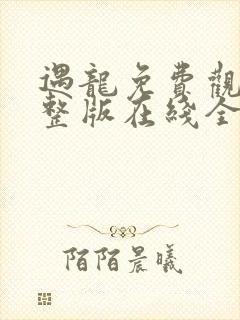 遇龍免費觀
整版在綫全
陌陌晨曦